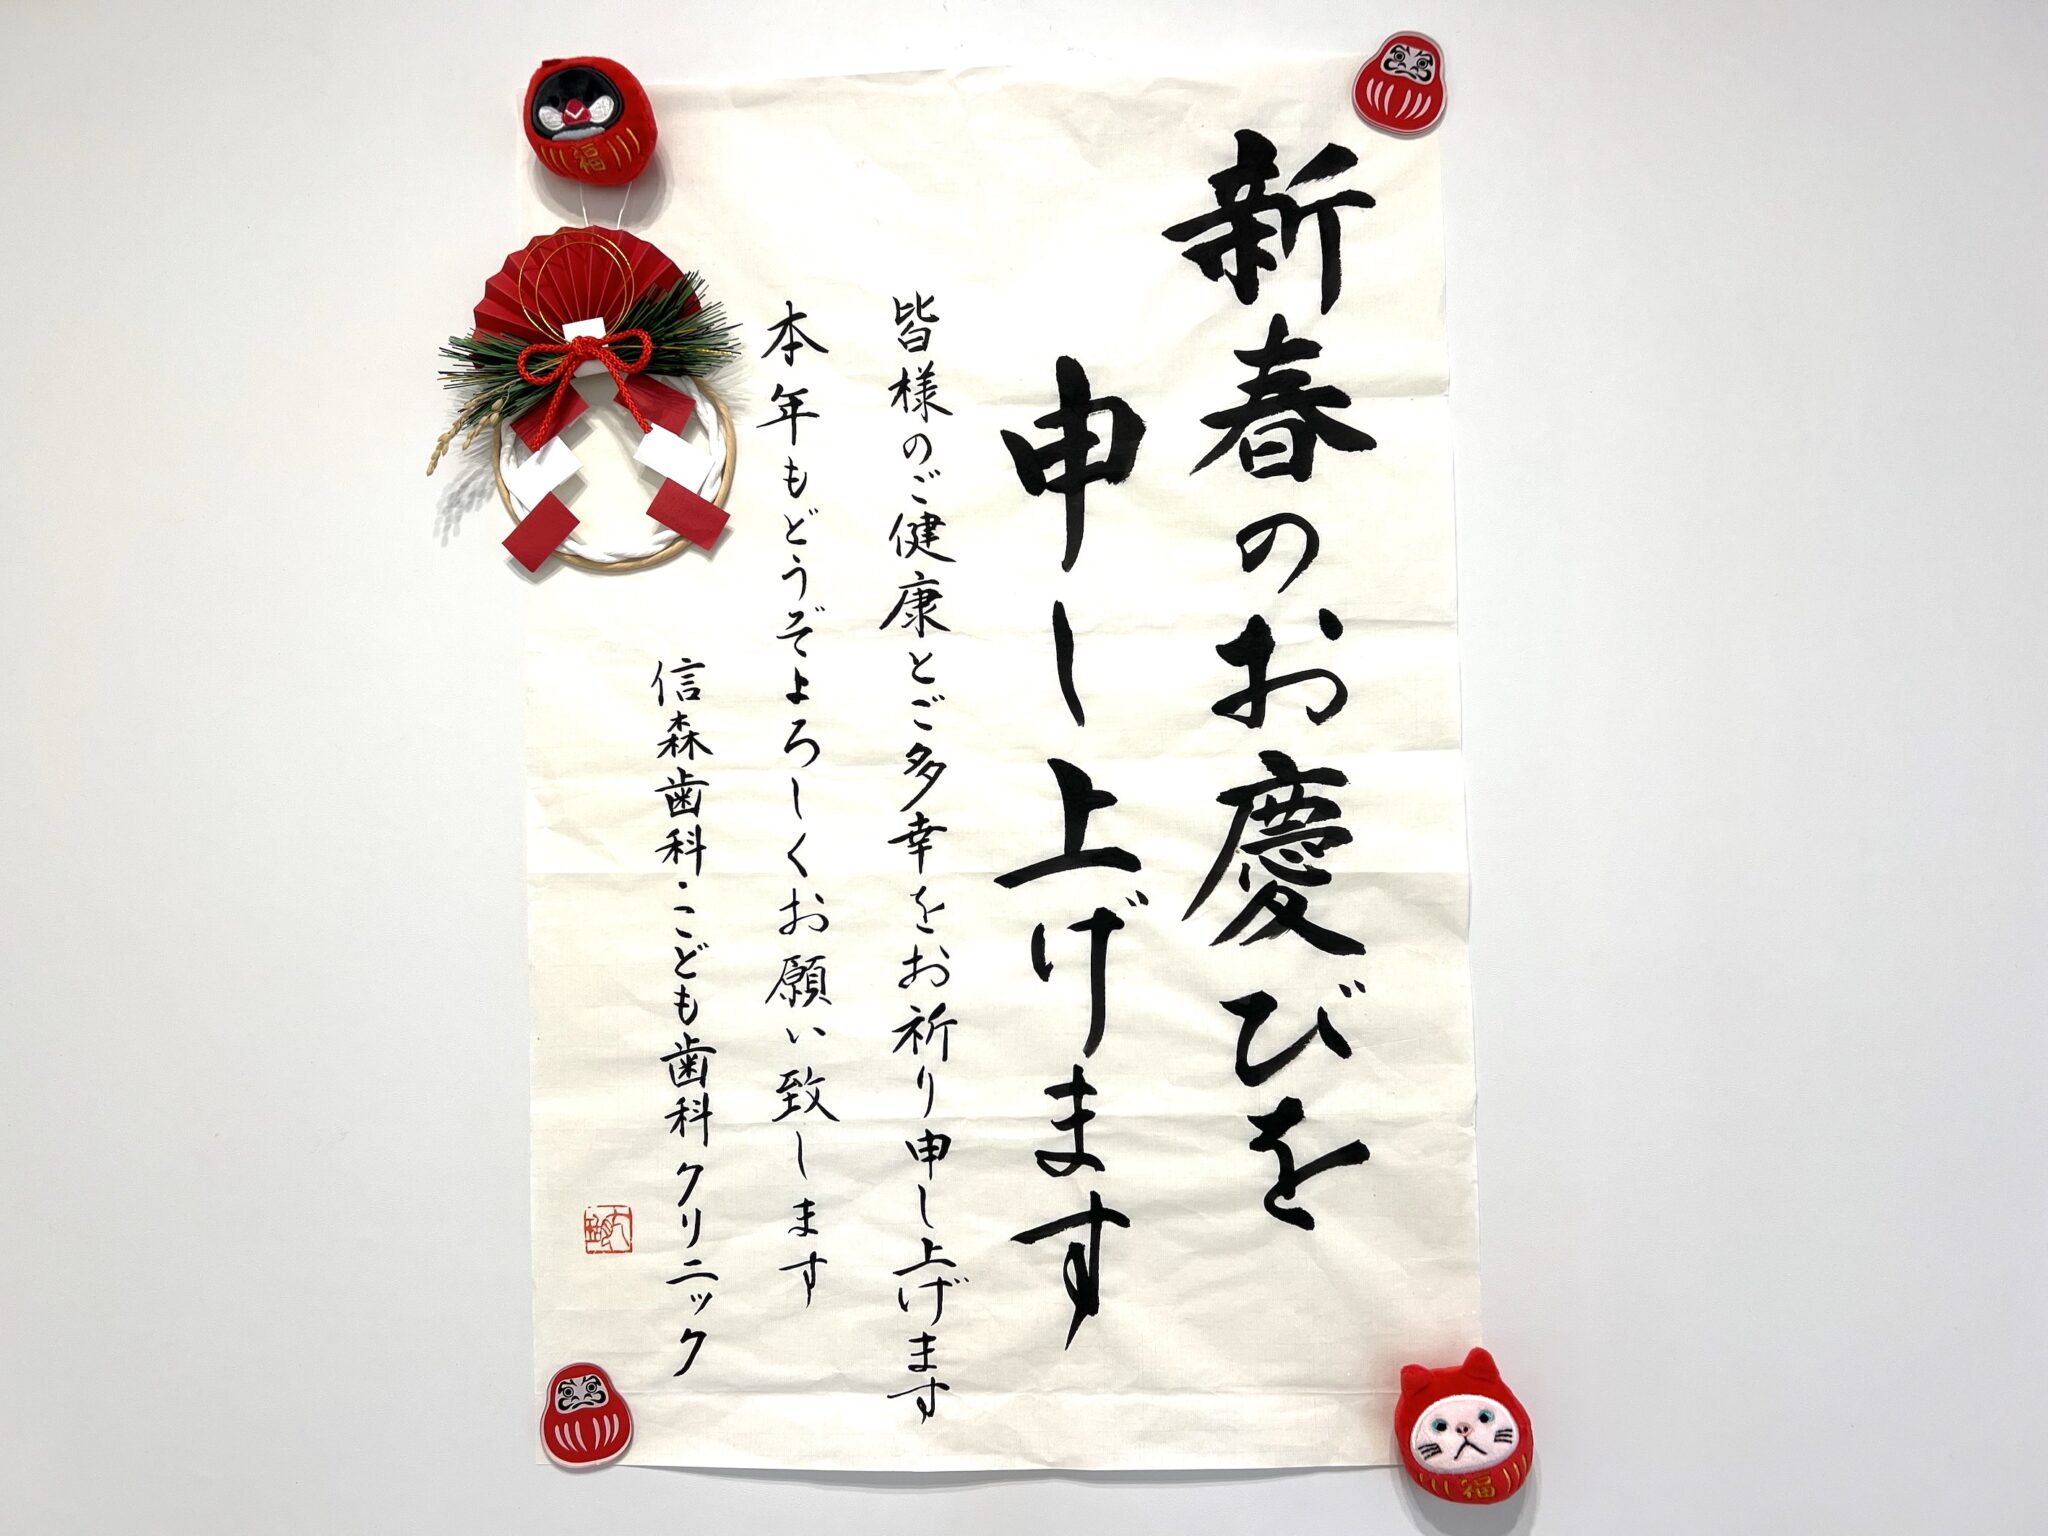 新春のお慶びを
申し上げます
皆様のご健康とご多幸をお祈り申し上げます
本年もどうぞよろしくお願い致します
信森歯科・こども歯科クリニック
福
福